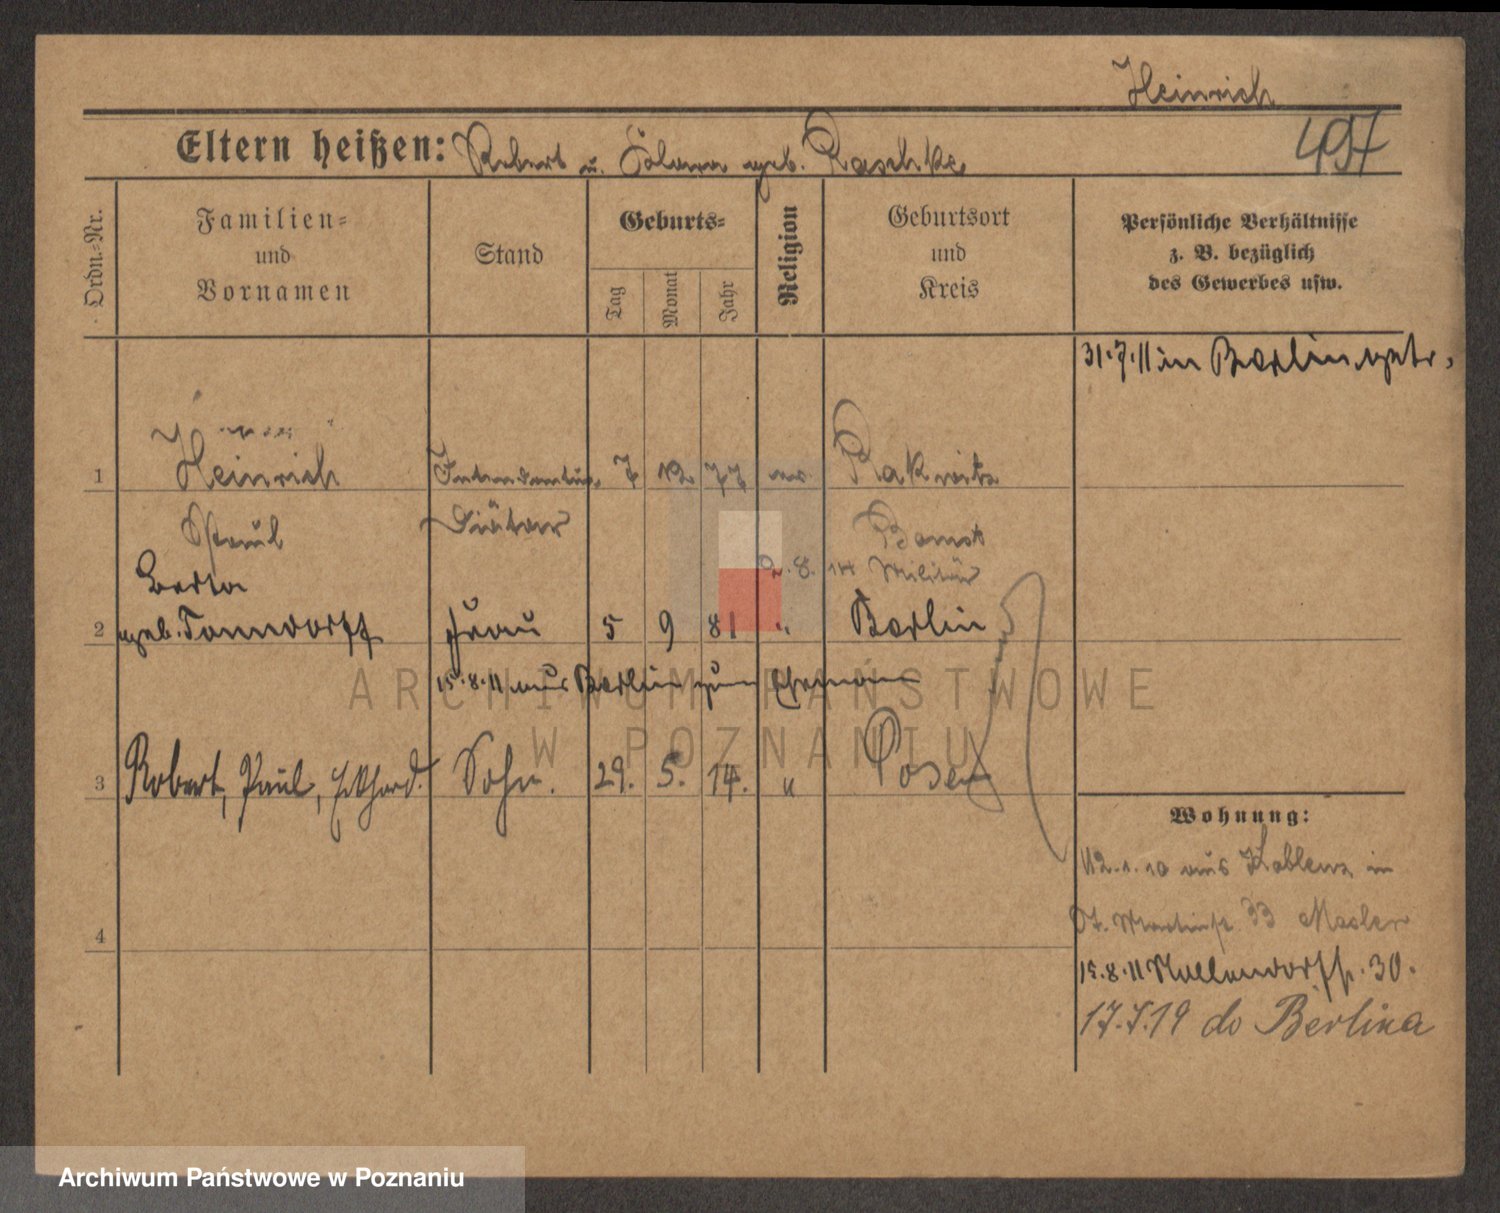 Heinrich
497
Eltern heißen: Robert u. geb. Raschke
Ordn.-Nr.
Familien-
und
Vornamen
Stand
Geburts-
Tag
Monat
Jahr
Religion
Geburtsort
und
Kreis
Persönliche Verhältnisse
z. B. bezüglich
des Gewerbes usw.
31.7.11 in Berlin getr.
1 Heinrich 7 12 77 ev. Rakwitz
Paul Diätar Bomst
2.8.14 Militär
Berta
2 geb. Tonndorff Frau 5 9 81 " Berlin
15.8.11 aus Berlin zum Ehemann
3 Robert, Paul, Eckhard. Sohn. 29. 5. 14. " Posen
Wohnung:
12.1.10 aus Koblenz in
33
4
15.8.11 Nollendorffstr. 30.
17.7.19 do Berlina
ARCHIWUM PAŃSTWOWE
W POZNANIU
Archiwum Państwowe w Poznaniu